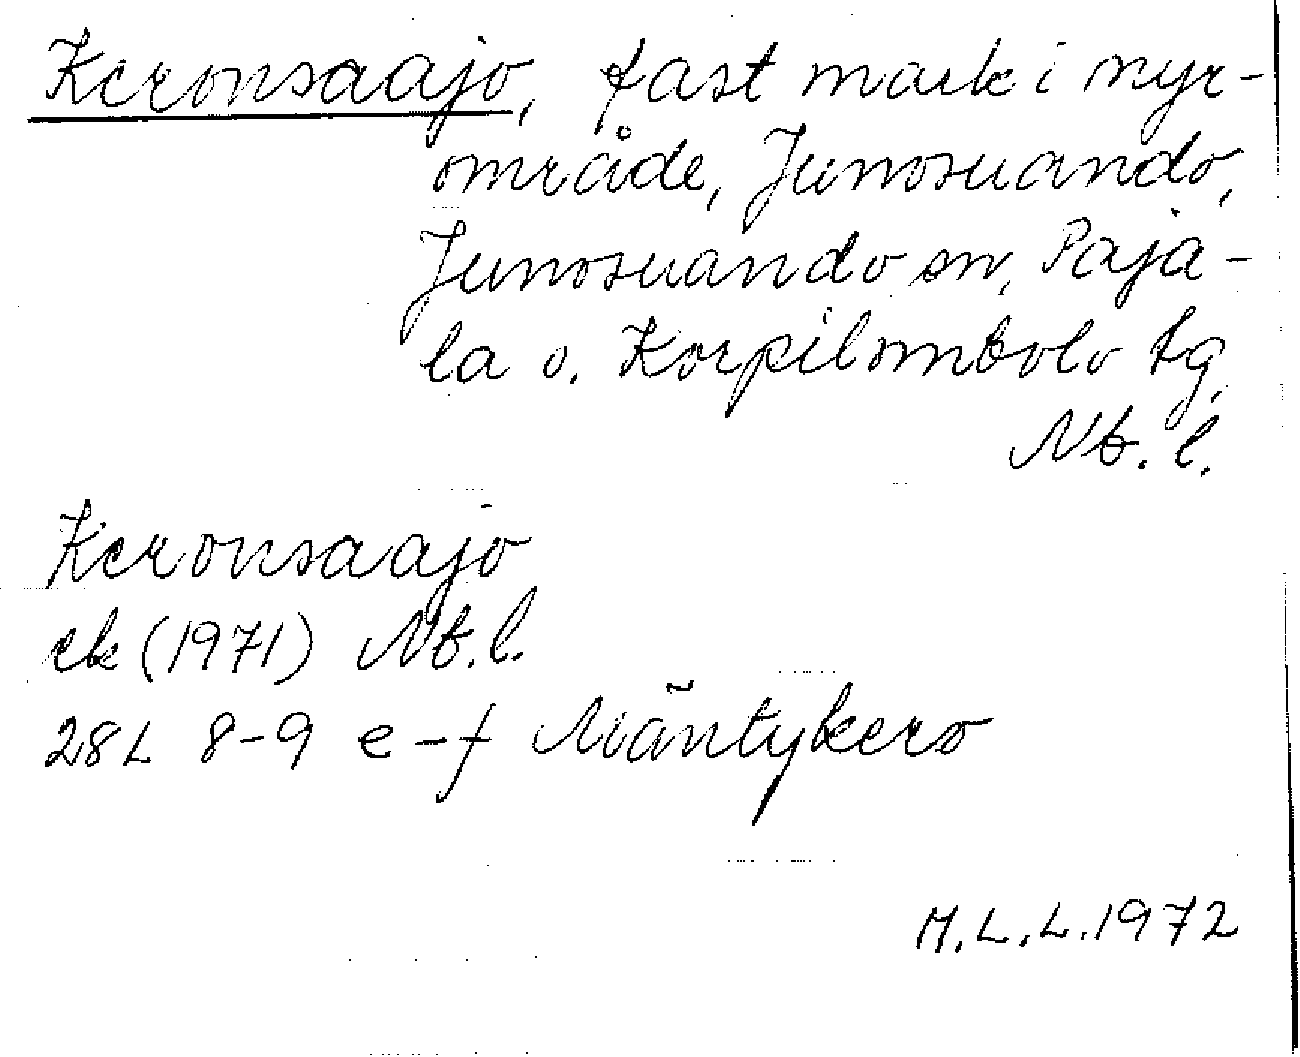 Keronsaajo, fast mark i myr-
område, Junosuando,
Junosuando sn, Paja-
la o. Korpilombolo tg,
Nb. l.
Keronsaajo
ek (1971) Nb. l.
28L 8-9 e-f Mäntykero
M.L.L. 1972